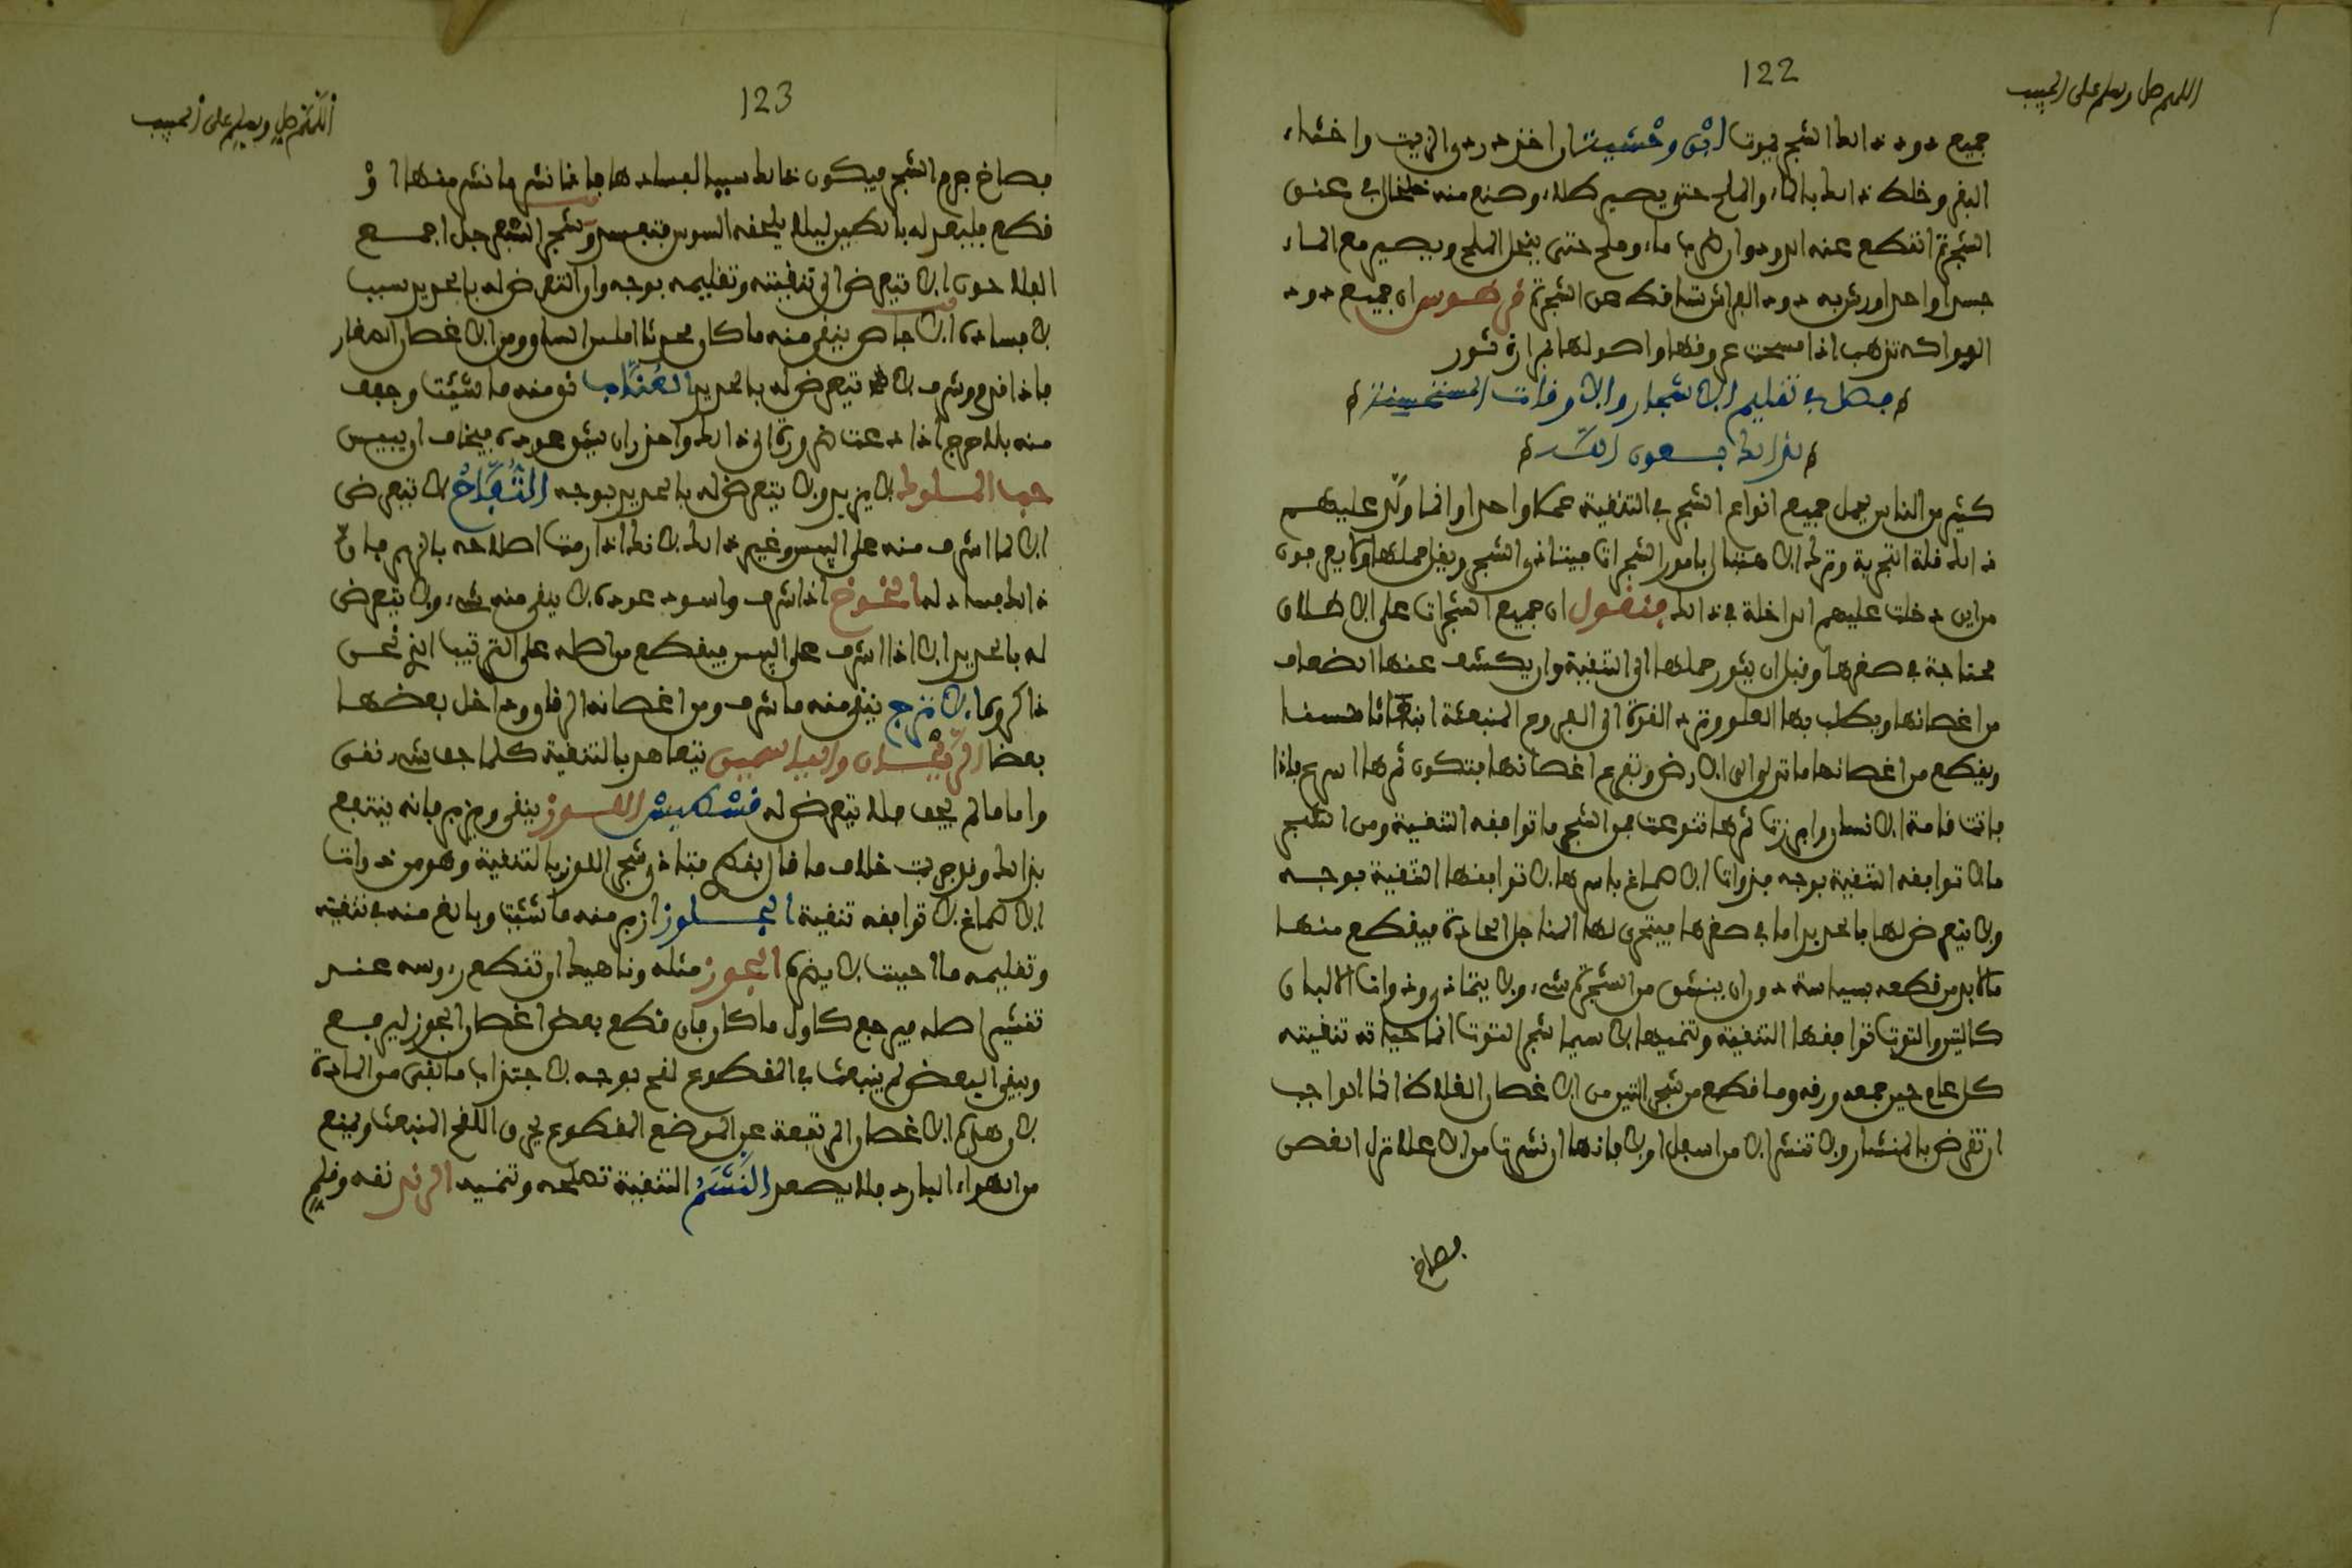 اللهم صل وسلم على الحبيب
122
جميع دود ذلك الشجر يموت ابن وحشية ان اخذ دردي الزيت واخثاء
البقر وخلط ذلك بالماء والملح حتى يصير طلاء وصنع منه خلخال في عنق
الشجرة انقطع عنه الدود وان ضرب ماء وملح حتى ينحل الملح ويصير مع الماء
جسدا واحدا ورش به دود الفراش تساقط من الشجرة قرهوس ان جميع دود
الفواكه تذهب اذا مسحت عروقها واصولها بمرارة ثور
فصل في تقليم الاشجار والاوقات المستحسنة
لذلك بعون الله
كثير من الناس يحمل جميع انواع الشجر في التنقية محملا واحدا وانما ولد عليهم
ذلك قلة التجربة وترك الاهتبال بامور الشجرات فيتاذى الشجر ويقل حملها ولا يعرفون
من اين دخلت عليهم الداخلة في ذلك فنقول ان جميع الشجرات على الاطلاق
محتاجة في صغرها وقبل ان يثور حملها الى التنقية وان يكشف عنها الضعاف
من اغصانها ويطلب بها العلو وترد القوة الى الفروع المنبعثة انبعاثا حسنا
ويقطع من اغصانها ما تدلى الى الارض وتفرع اغصانها فتكون ثمرها اسرع فاذا
فاتت قامة الانسان وابرزت ثمرها تنوعت فمن الشجر ما توافقه التنقية ومن الشجر
ما لا توافقه التنقية بوجه فذوات الاصماغ باسرها لا توافقها التنقية بوجه
ولا يتعرض لها بالحديد اما في صغرها فيتحرى لها المناجل الحادة فيقطع منها
ما لابد من قطعه بسياسة دون ان ينشق من الشجرة شيء ولا يتاذى وذوات الالبان
كالتين والتوت توافقها التنقية وتنميها لا سيما شجر التوت انما حياته تنقيته
كل عام حين جمع ورقه وما قطع من شجر التين من الاغصان الغلاظ انما الواجب
ان تقرض بالمنشار ولا تنشر الا من اسفل اولا فانها ان نشرت من الاعلا نزل الغصن
فصاخ
اللهم صل وسلم على الحبيب
123
فصاخ جرم الشجر فيكون ذلك سببا لفسادها فاذا نشر ما نشر منها او
قطع فليبعد له بالطين ليلا يلحقه السوس فتفسد وشجر الشمع جل اجمع
الفلاحون الا تتعرض الى تنقيته وتقليمه بوجه وان التعرض له بالحديد سبب
لافساده الاجاص ينقى منه ما كان محرثا املس الساق ومن الاغصان الصغار
فاذا قدم وشرف لا تتعرض له بالحديد العناب نق منه ما شئت وجفف
منه بلا حرج اذا دعت ضرورة الى ذلك واحذر ان ينشق عوده فيخاف ان ييبس
حب الملوك لا يزبر ولا يتعرض له بالحديد بوجه التفاح لا تتعرض
الا لما اشرف منه على اليبس وغير ذلك لا تقلمه ارمت اصلاحه بالزبر فان
ذلك فساد له الخوخ اذا شرف واسود عوده لا ينقى منه شيء ولا يتعرض
له بالحديد الا اذا اشرف على اليبس فيقطع من اصله على الترتيب الذي نحن
ذاكروه الاترج ينقى منه ما شرف ومن اغصانه الرقاق وداخل بعضها
بعضا الريحان والياسمين تتعاهد بالتنقية كلما جف شيء نقى
واما ما لم يجف فلا يتعرض له قسطيس اللوز ينقى ويزبر فانه ينتفع
بذلك وقد جربت خلاف ما قال بقطع فتاذى شجر اللوز بالتنقية وهو من ذوات
الاصماغ لا توافقه تنقية الجلوز ازبر منه ما شئت وبالغ منه في تنقيته
وتقليمه ما احببت لا يضره الجوز مثله وناهيك ان تقطع رءوسه عند
تقشير اصله فيرجع كاول ما كان فان قطع بعض اغصان الجوز ليرجع
وبقي البعض لم ينبعث في المقطوع لقح بوجه لاجتذاب ما بقي من المادة
لان هذه الاغصان المرتفعة عن الموضع المقطوع يحرق اللقح المنبعث ويمنع
من الهواء البارد فلا يصعد النشم التنقية تصلحه وتنميه الرند نقه وقلم